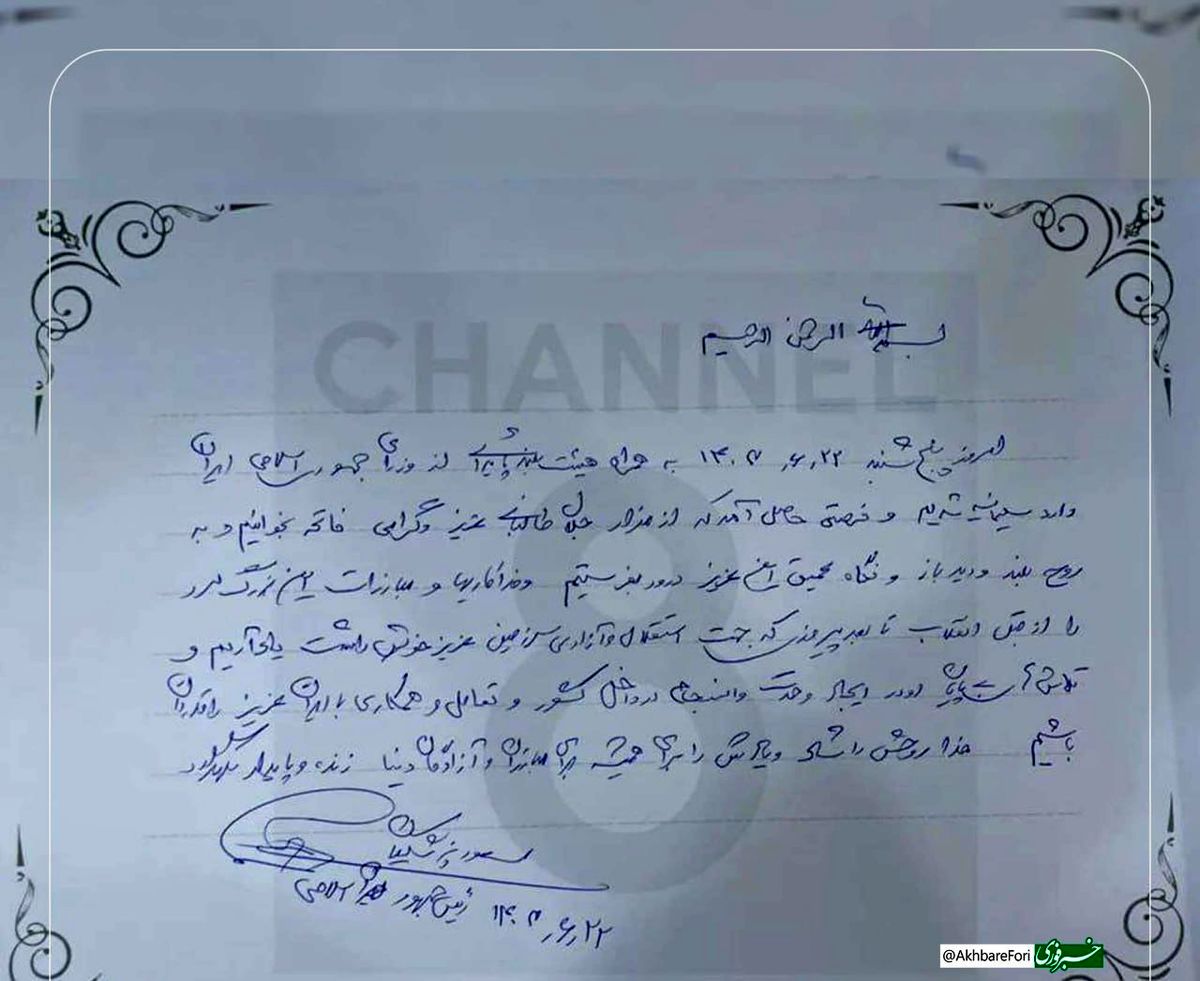 CHANNEL
8
بسم‌الله الرحمن الرحیم
امروز پنج شنبه ۱۴۰۳٫۶٫۲۲ به همراه هیئت بلند پایه‌ای از وزرای جمهوری اسلامی ایران
وارد سلیمانیه شدیم و فرصتی حاصل آمد که از مزار جلال طالبانی عزیز و گرامی فاتحه بخوانیم و به
روح بلند و دید باز و نگاه عمیق این عزیز درود بفرستیم و فداکاریها و مبارزات این بزرگ مرد
را از قبل انقلاب تا بعد پیروزی که جهت استقلال و آزادی سرزمین عزیز خویش داشت یاد آریم و
تلاش بی پایان او در ایجاد وحدت و انسجام در داخل کشور و تعامل و همکاری با ایران عزیز را قدردان
باشیم خدا روحش را شاد و یادش را برای همیشه برای مبارزان و آزادگان دنیا زنده و پایدار
مسعود پزشکیان
رئیس جمهور اسلامی
۱۴۰۳٫۶٫۲۲
@AkhbareFori خبرفوری